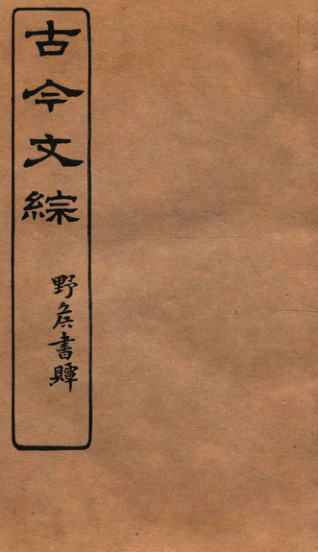 古今文綜
野矦書耑